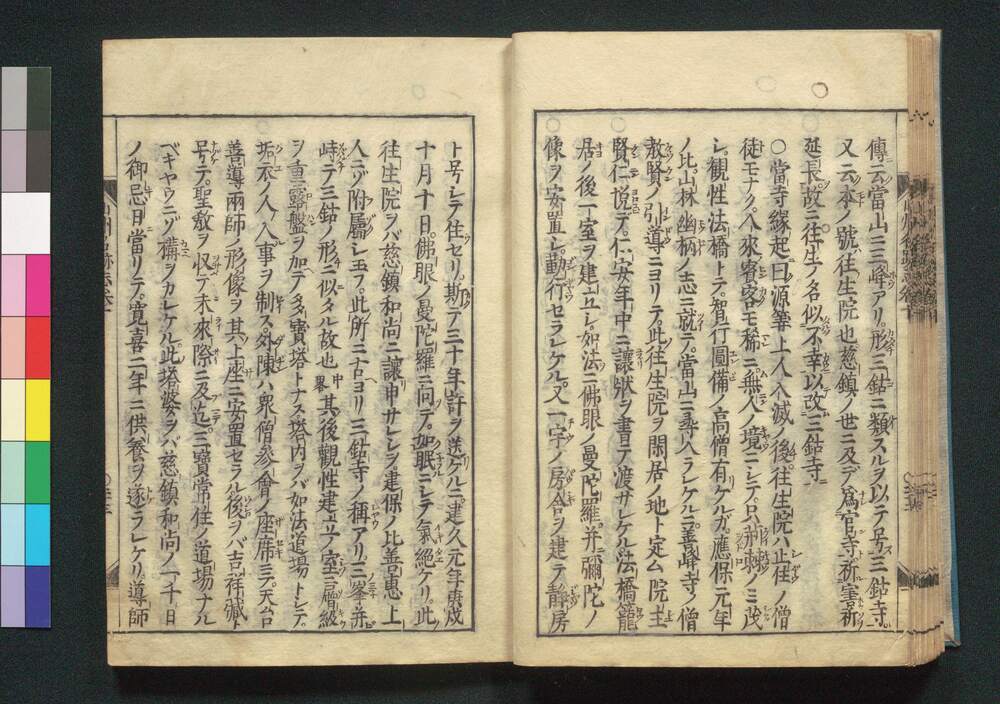 傳ニ云當山ニ三峰アリ形三鈷ニ類スルヲ以テ号三鈷寺
又云本ノ號往生院也慈鎮ノ世ニ及デ為官寺祈
延長故ニ往生ノ名似不幸以改三鈷寺
〇當寺縁起曰源筭上人入滅ノ後往生院ハ止住ノ僧
徒モナク人來寮客モ稀ニ無人ノ境ニシテ只荊棘ノミ茂
シ觀性法橋トテ智行圓備ノ高僧有ケルガ應保元年
ノ比山林幽栖ノ志ニ就テ當山ニ尋入ラレケルニ善峰寺ノ僧
敖賢ノ引導ニヨリテ此往生院ヲ閑居ノ地ト定ム院主
賢仁悦デ仁安年中ニ讓狀ヲ書テ渡サレケル法橋籠
居ノ後一室ヲ建立シ如法ニ佛眼ノ曼陀羅并彌陀ノ
像ヲ安置シ勤行セラレケル又一宇ノ房舎ヲ建テ静房
ト号シテ住セリ斯テ三十年許ヲ送ケルニ建久元年庚戌
十月十日佛眼ノ曼陀羅ニ向テ如眠ニシテ氣絶ケリ此
往生院ヲバ慈鎮和尚ニ讓申サレシヲ建保ノ比善惠上
人ニゾ附屬シ玉フ此所ニ古ヘヨリ三鈷寺ノ稱アリ三峯并
峙テ三鈷ノ形ニ似タル故也中畧其後觀性建立ノ室ニ層級
ヲ重露盤ヲ加テ多寳塔トナス塔内ヲバ如法道場トシテ
垢衣ノ人入事ヲ制ス外陳ハ衆僧參會ノ座席ニテ天台
善導兩師ノ形像ヲ其上座ニ安置セラル後ヲバ吉祥藏ト
号テ聖敎ヲ収テ未來際ニ及迄三寳常住ノ道場ナル
ベキヤウニゾ構ヲカレケル此塔婆ヲバ慈鎮和尚ノ一千日
ノ御忌日當リテ寛喜二年ニ供養ヲ遂ラレケリ導師